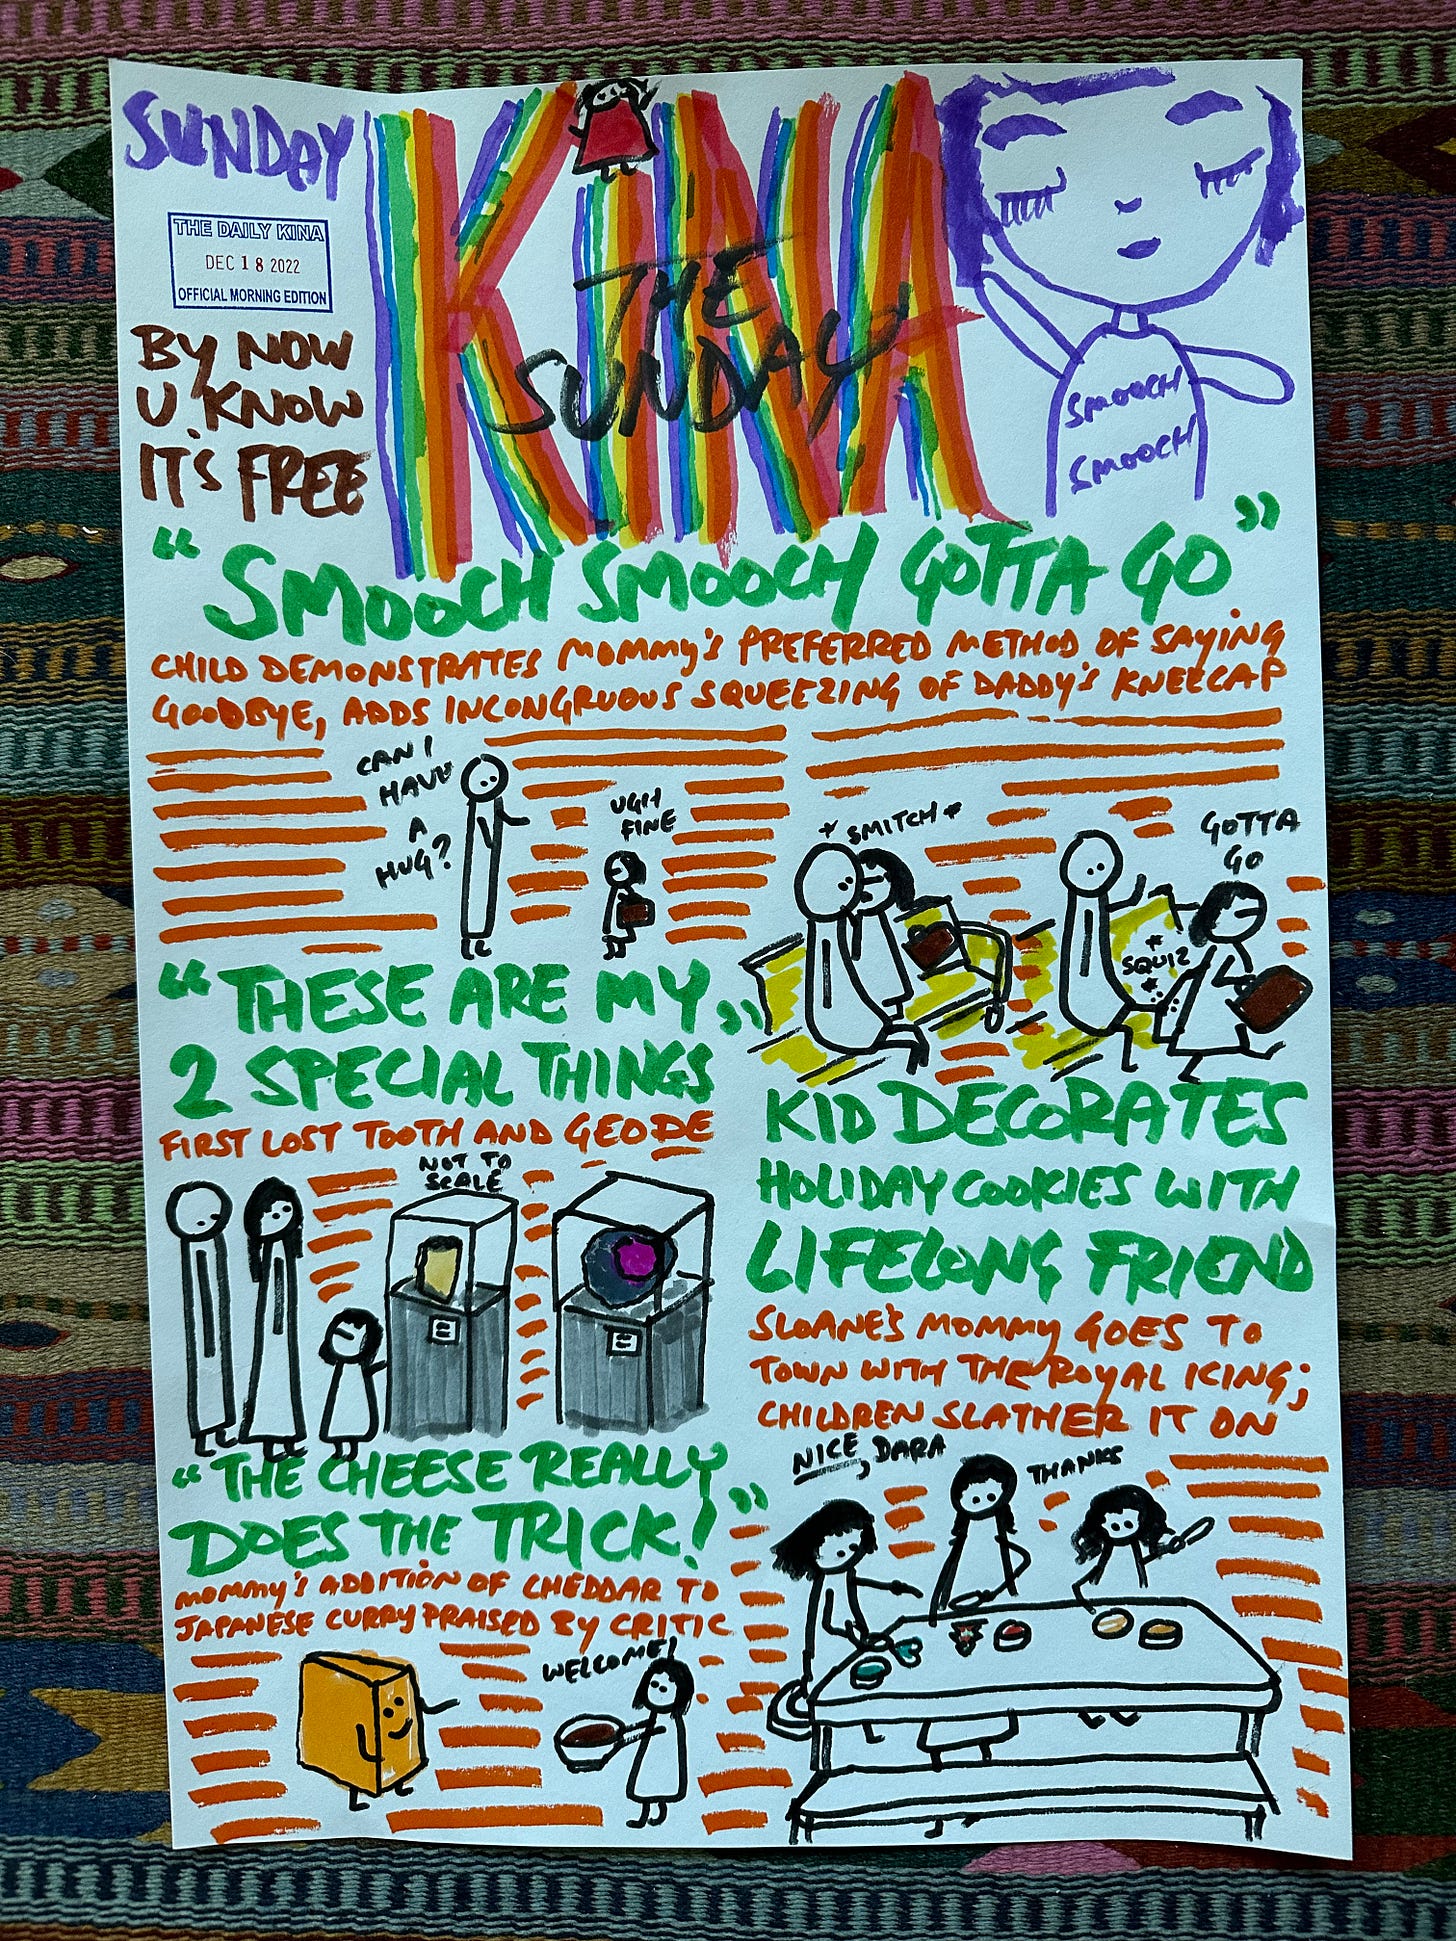 SUNDAY
THE DAILY KINA
DEC 18 2022
OFFICIAL MORNING EDITION
BY NOW
U KNOW
IT'S FREE
KINA
THE
SUNDAY
SMOOCH
SMOOCH
"SMOOCH SMOOCH GOTTA GO"
CHILD DEMONSTRATES MOMMY'S PREFERRED METHOD OF SAYING
GOODBYE, ADDS INCONGRUOUS SQUEEZING OF DADDY'S KNEECAP
CAN I
HAVE
A
HUG?
UGH
FINE
*SMITCH*
GOTTA
GO
SQUIZ
"THESE ARE MY
2 SPECIAL THINGS"
FIRST LOST TOOTH AND GEODE
NOT TO
SCALE
"THE CHEESE REALLY
DOES THE TRICK!"
MOMMY'S ADDITION OF CHEDDAR TO
JAPANESE CURRY PRAISED BY CRITIC
WELCOME!
KID DECORATES
HOLIDAY COOKIES WITH
LIFELONG FRIEND
SLOANE'S MOMMY GOES TO
TOWN WITH THE ROYAL ICING;
CHILDREN SLATHER IT ON
NICE, DARA
THANKS